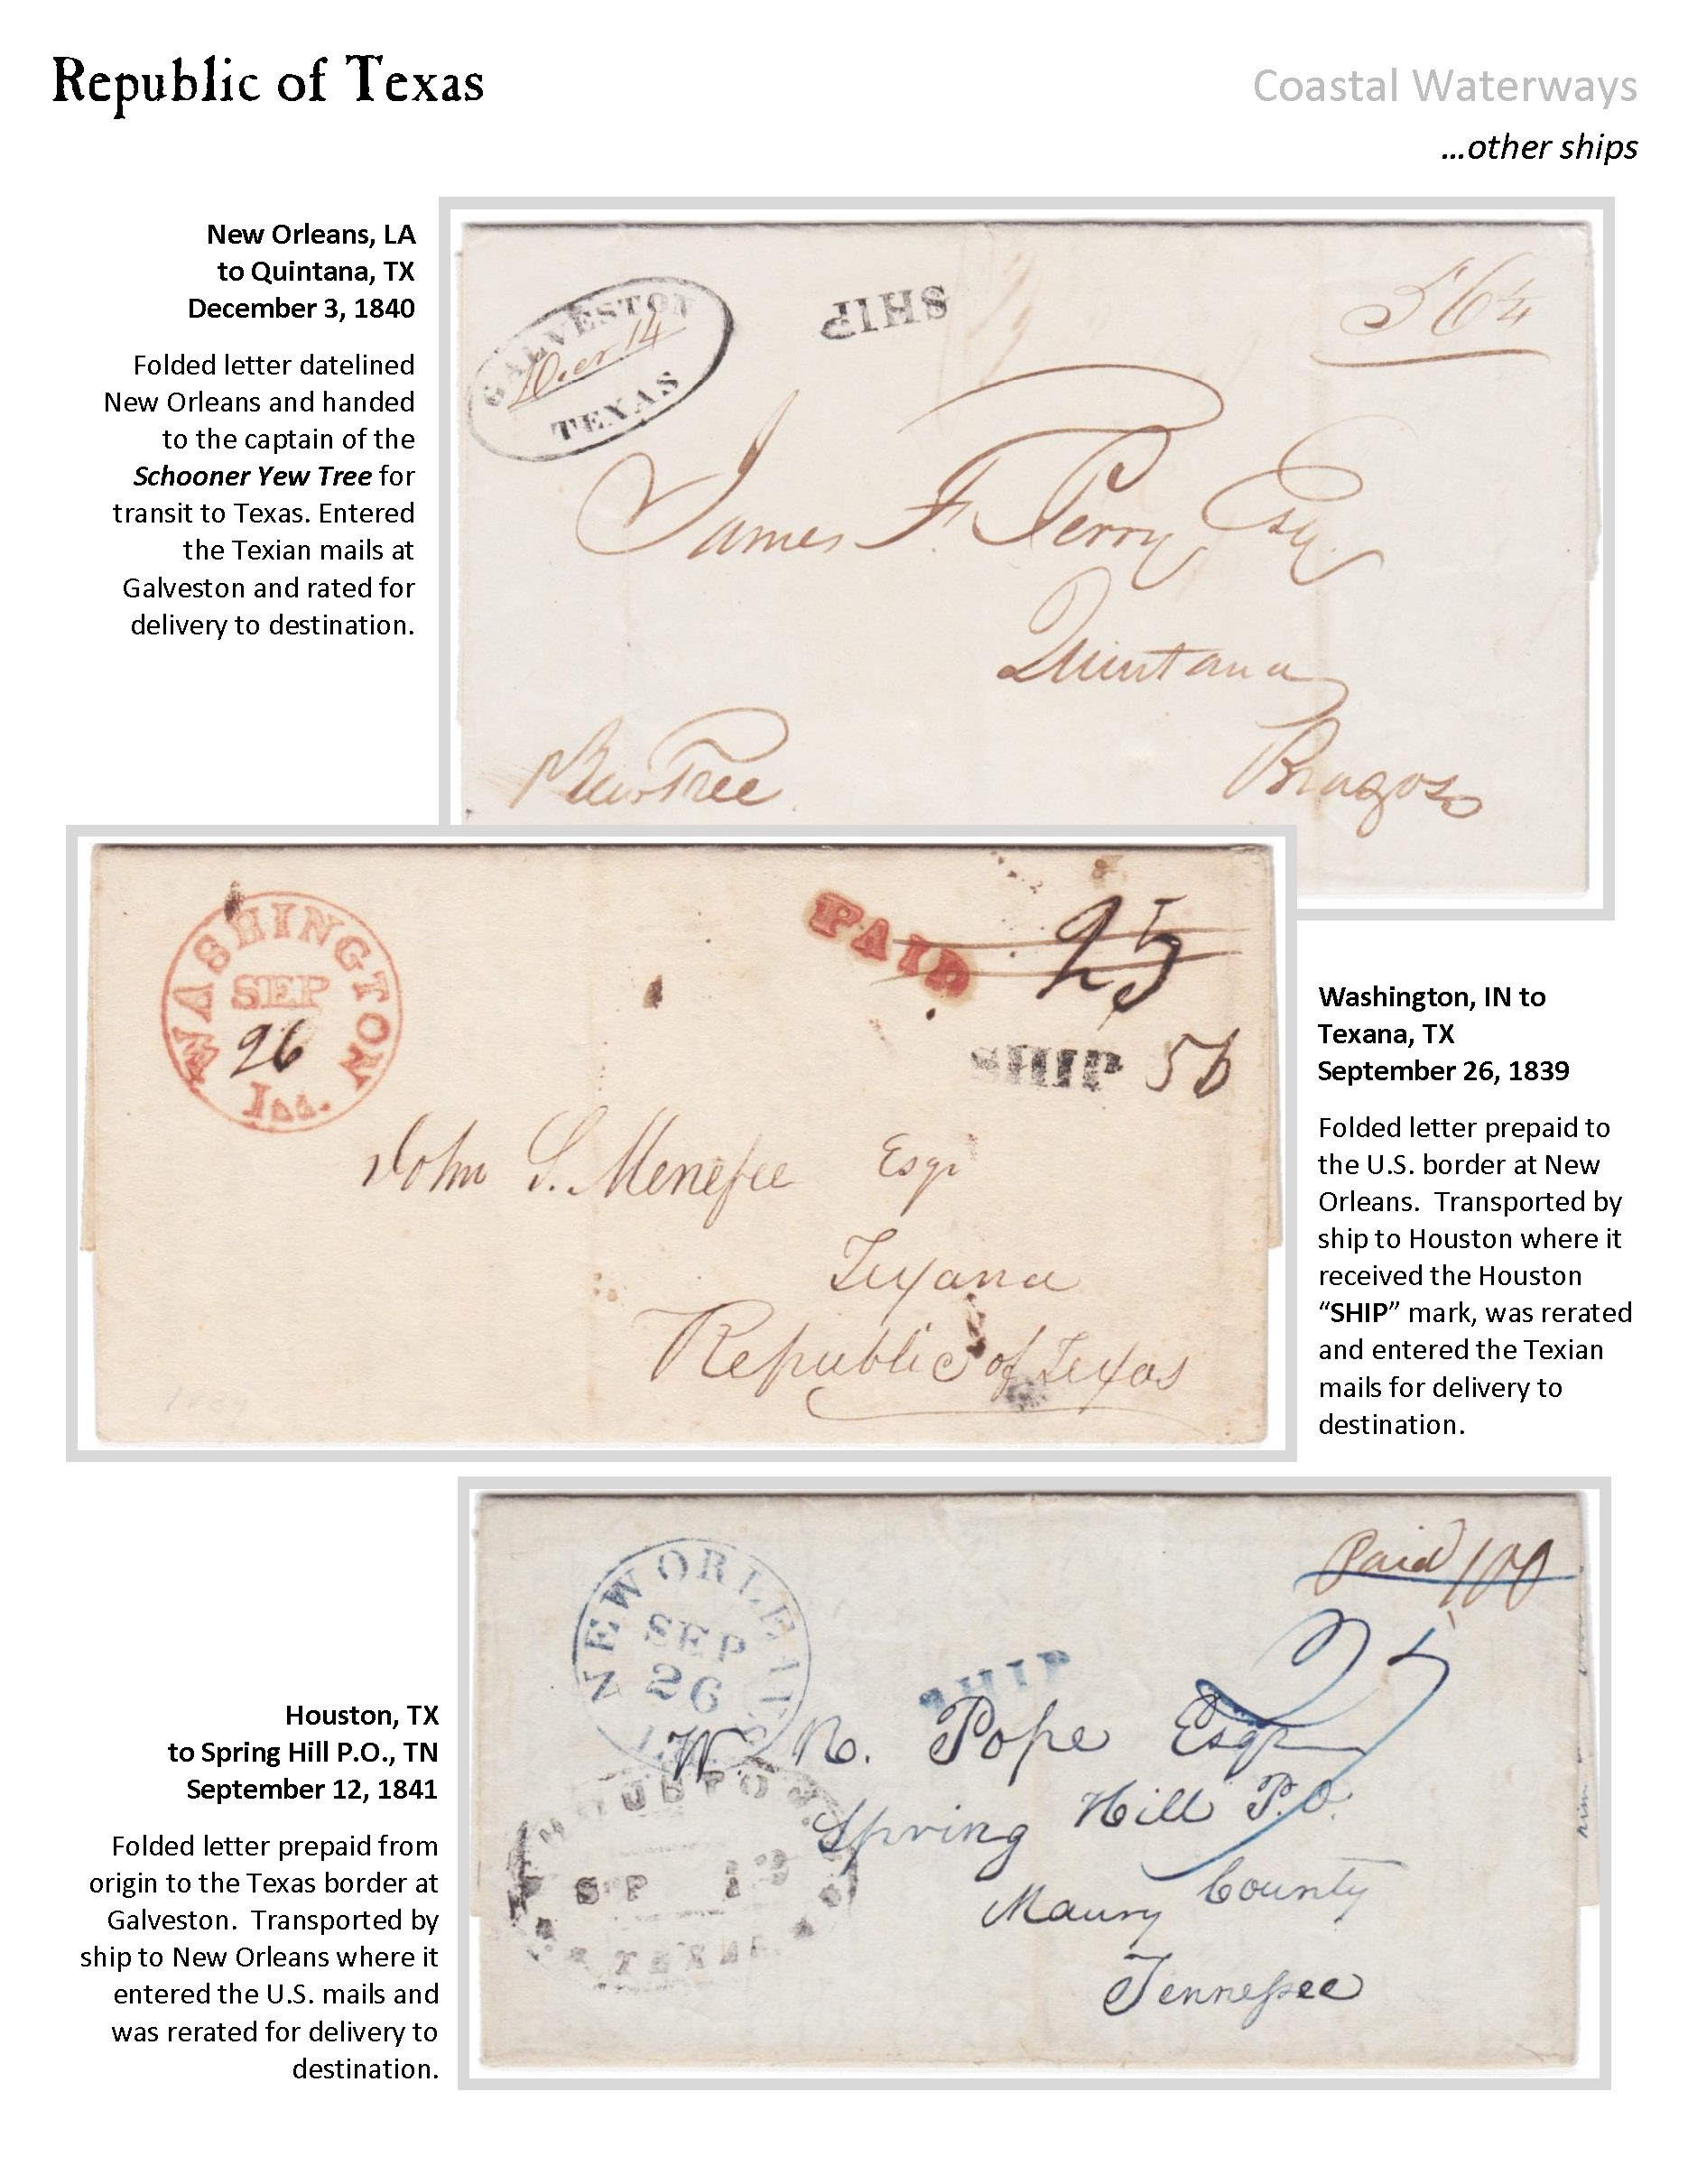 Republic of Texas
Coastal Waterways
...other ships
New Orleans, LA
to Quintana, TX
December 3, 1840
Folded letter datelined
New Orleans and handed
to the captain of the
Schooner Yew Tree for
transit to Texas. Entered
the Texian mails at
Galveston and rated for
delivery to destination.
GALVESTON
TEXAS
SHIP
56¼
James F. Perry Esq
Quintana
Brazos
Yew Tree
WASHINGTON
SEP
26
Ia.
PAID
25
SHIP 56
John S. Menefee Esqr
Texana
Republic of Texas
Washington, IN to
Texana, TX
September 26, 1839
Folded letter prepaid to
the U.S. border at New
Orleans.  Transported by
ship to Houston where it
received the Houston
“SHIP” mark, was rerated
and entered the Texian
mails for delivery to
destination.
Houston, TX
to Spring Hill P.O., TN
September 12, 1841
Folded letter prepaid from
origin to the Texas border at
Galveston.  Transported by
ship to New Orleans where it
entered the U.S. mails and
was rerated for delivery to
destination.
NEW ORLEANS
SEP
26
Paid 100
25
SHIP
W. R. Pope Esqr
Spring Hill P.O.
Maury County
Tennessee
TEXAS